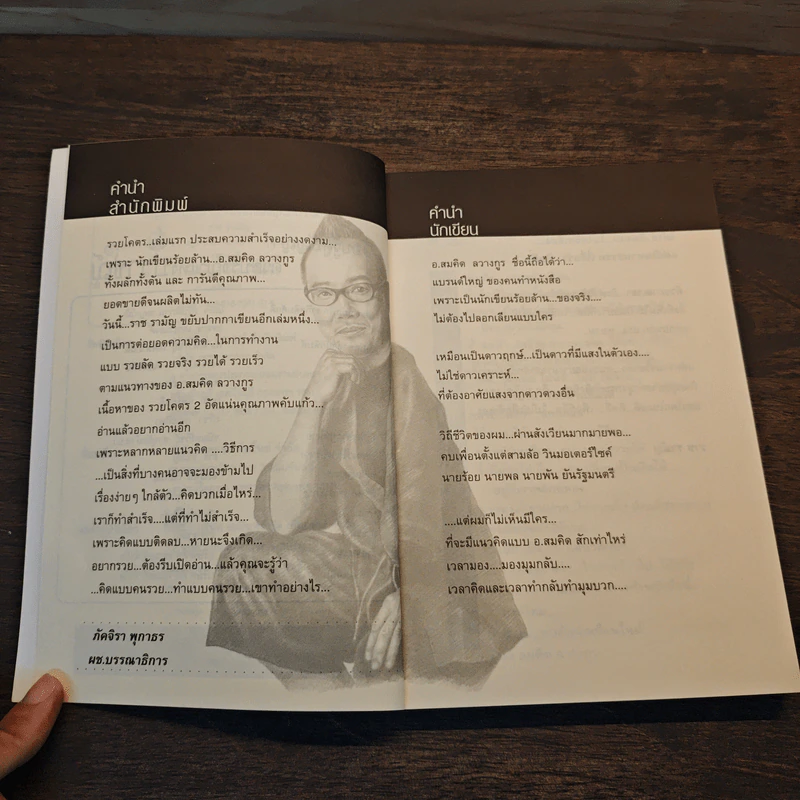 คำนำ
สำนักพิมพ์
รวยโคตร..เล่มแรก ประสบความสำเร็จอย่างงดงาม...
เพราะ นักเขียนร้อยล้าน...อ.สมคิด ลวางกูร
ทั้งผลักทั้งดัน และ การันตีคุณภาพ...
ยอดขายดีจนผลิตไม่ทัน...
วันนี้...ราช รามัญ ขยับปากกาเขียนอีกเล่มหนึ่ง...
เป็นการต่อยอดความคิด...ในการทำงาน
แบบ รวยลัด รวยจริง รวยได้ รวยเร็ว
ตามแนวทางของ อ.สมคิด ลวางกูร
เนื้อหาของ รวยโคตร 2 อัดแน่นคุณภาพคับแก้ว...
อ่านแล้วอยากอ่านอีก
เพราะหลากหลายแนวคิด ....วิธีการ
...เป็นสิ่งที่บางคนอาจจะมองข้ามไป
เรื่องง่ายๆ ใกล้ตัว...คิดบวกเมื่อไหร่...
เราก็ทำสำเร็จ....แต่ที่ทำไม่สำเร็จ...
เพราะคิดแบบติดลบ...หายนะจึงเกิด...
อยากรวย...ต้องรีบเปิดอ่าน...แล้วคุณจะรู้ว่า
...คิดแบบคนรวย...ทำแบบคนรวย...เขาทำอย่างไร...
ภัคจิรา พุกาธร
ผช.บรรณาธิการ
คำนำ
นักเขียน
อ.สมคิด ลวางกูร ชื่อนี้ถือได้ว่า...
แบรนด์ใหญ่ ของคนทำหนังสือ
เพราะเป็นนักเขียนร้อยล้าน...ของจริง....
ไม่ต้องไปลอกเลียนแบบใคร
เหมือนเป็นดาวฤกษ์...เป็นดาวที่มีแสงในตัวเอง....
ไม่ใช่ดาวเคราะห์...
ที่ต้องอาศัยแสงจากดาวดวงอื่น
วิถีชีวิตของผม...ผ่านสังเวียนมากมายพอ...
คบเพื่อนตั้งแต่สามล้อ วินมอเตอร์ไซค์
นายร้อย นายพล นายพัน ยันรัฐมนตรี
....แต่ผมก็ไม่เห็นมีใคร...
ที่จะมีแนวคิดแบบ อ.สมคิด สักเท่าไหร่
เวลามอง....มองมุมกลับ....
เวลาคิดและเวลาทำกลับทำมุมบวก....